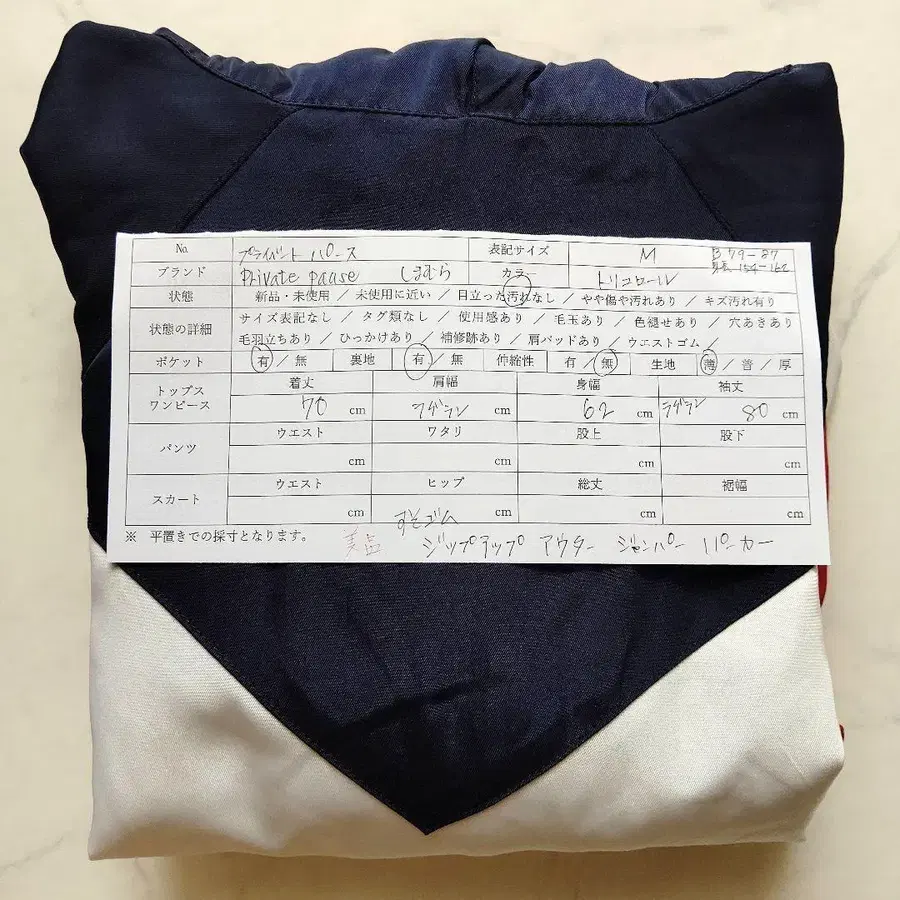 No. プライベート パース 表記サイズ M B 79-87
ブランド Private pause しまむら カラー トリコロール 身長 154-162
状態 新品・未使用 / 未使用に近い / 目立った汚れなし / やや傷や汚れあり / キズ汚れ有り
状態の詳細 サイズ表記なし / タグ類なし / 使用感あり / 毛玉あり / 色褪せあり / 穴あきあり
毛羽立ちあり / ひっかけあり / 補修跡あり / 肩パッドあり / ウエストゴム /
ポケット 有 / 無 裏地 有 / 無 伸縮性 有 / 無 生地 薄 / 普 / 厚
トップス ワンピース 着丈 肩幅 身幅 袖丈
70 cm ラグラン cm 62 cm ラグラン 80 cm
パンツ ウエスト ワタリ 股上 股下
cm cm cm cm
スカート ウエスト ヒップ 総丈 裾幅
cm cm cm cm
すそゴム
※ 平置きでの採寸となります。 美品 ジップアップ アウター ジャンパー パーカー